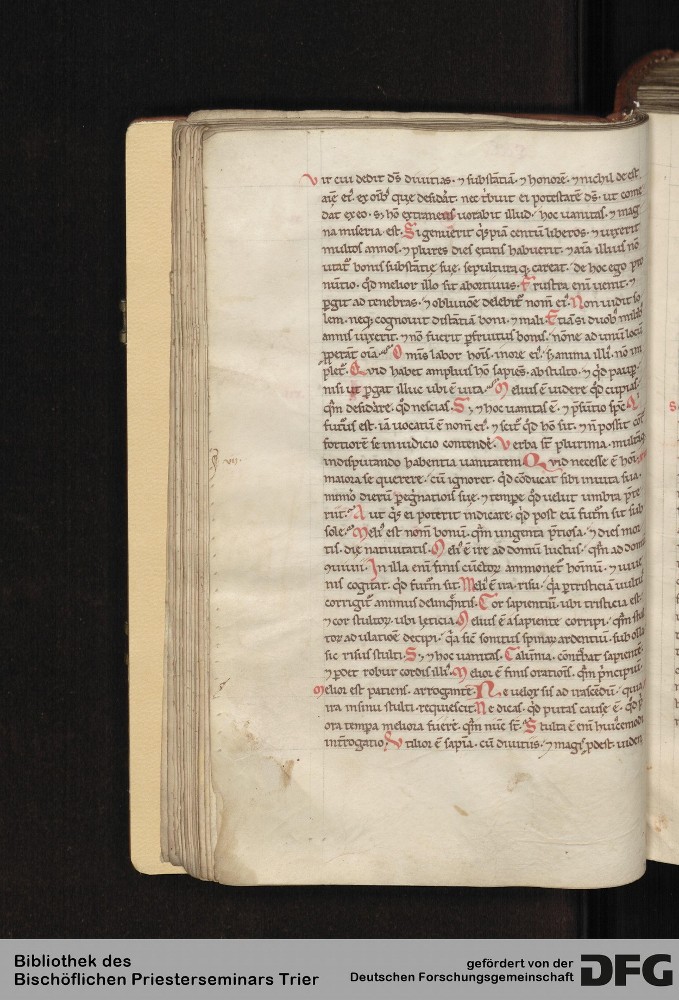 Vir cui dedit d̄s diuitias · ⁊ substātiā · ⁊ honorē · ⁊ nichil de est
aīe ei᷒ · ex oīb᷒ que desiďat · nec tͥbuit ei potestatē d̄s · ut come
dat ex eo · s; hō extraneus uorabit illud · hoc uanitas · ⁊ mag
na miseria est · Si genuerit qͥspiā centū liberos · ⁊ uixerit
multos annos · ⁊ plures dies etatis habuerit · ⁊ aīa illius nō
utat᷑ bonis substātie sue · sepultura q; careat · de hoc ego pro
nūtio · qd̄ melior illo sit abortiuus · Frustra enī uenit · ⁊
pergit ad tenebras · ⁊ obliuiōe delebit᷑ nom̄ ei᷒ · Non uidit so
lem · neq; cognouit distātiā boni · ⁊ mali · Etiā si duob᷒ milib᷒
annis uixerit · ⁊ nō fuerit perfruitus bonis · nōne ad unū locū
properāt oīa · Omīs labor hoīs · in ore ei᷒ · s; anima illi᷒ · nō im
plet᷑ · Quid habet amplius hō sapiēs · ab stulto · ⁊ qd̄ paup̄ ·
nisi ut pergat illuc ubi ē uita · Melius ē uidere qd̄ cupias ·
qm̄ desiďare · qd̄ nescias · S; ⁊ hoc uanitas ē · ⁊ p̄sūtio spc̄ · Qͥ
futurus est · iā uocatū ē nom̄ ei᷒ · ⁊ scit᷑ qd̄ hō sit · ⁊ ñ possit cōt
fortiorē se in iudicio contendēre · Verba sт̄ plurima · multāq;
in disputando habentia uanitatem · Quid necesse ē hoī ·
maiora se querere · cū ignoret · qd̄ cōducat sibi in uita sua ·
numero dierū peregͥnatiōis sue · ⁊ tempe qd̄ uelut umbra pͥte
rit · Aut qͥs ei poterit indicare · qd̄ post eū futur̄m sit sub
sole · Meli᷒ est nom̄ bonū · qm̄ ungenta pͥtiosa · ⁊ dies mor
tis · die natiuitatis · Meli᷒ ē ire ad domū luctus · qm̄ ad domū
ꝯuiuii · In illa enī finis cūctoꝝ ammonet᷑ hom̄nū · ⁊ uiue
ns cogitat · qd̄ futur̄m sit · Meli᷒ ē ira · risu · qͥa per tristiciā uultus
corrigit᷑ animus delinqͣntis · Cor sapientiū · ubi tristicia est ·
⁊ cor stultoꝝ · ubi leticia · Melius ē a sapiente corripi · qm̄ stul
toꝝ adulatiōe decipi · qͥa sic̄ sonitus spinaꝝ ardentiū · sub olla ·
sic risus stulti · S; ⁊ hoc uanitas · Calūnia · conturbat sapientē ·
⁊ perdet robur cordis illi᷒ · Melior ē finis oratiōis · qm̄ pͥncipiū ·
Melior est patiens · arrogante · Ne uelox sis ad irascēdū · quia
ira in sinu stulti · requiescit · Ne dicas · qd̄ putas cause ē · qd̄ pͥ
ora tempa meliora fuere · qm̄ nūc sт̄ · Stulta ē enī hui᷒cemodi
int̄rogatio · Vtilior ē sapīa · cū diuitiis · ⁊ magis prodest · uiden
vii.
Bibliothek des
Bischöflichen Priesterseminars Trier
gefördert von der
Deutschen Forschungsgemeinschaft
DFG